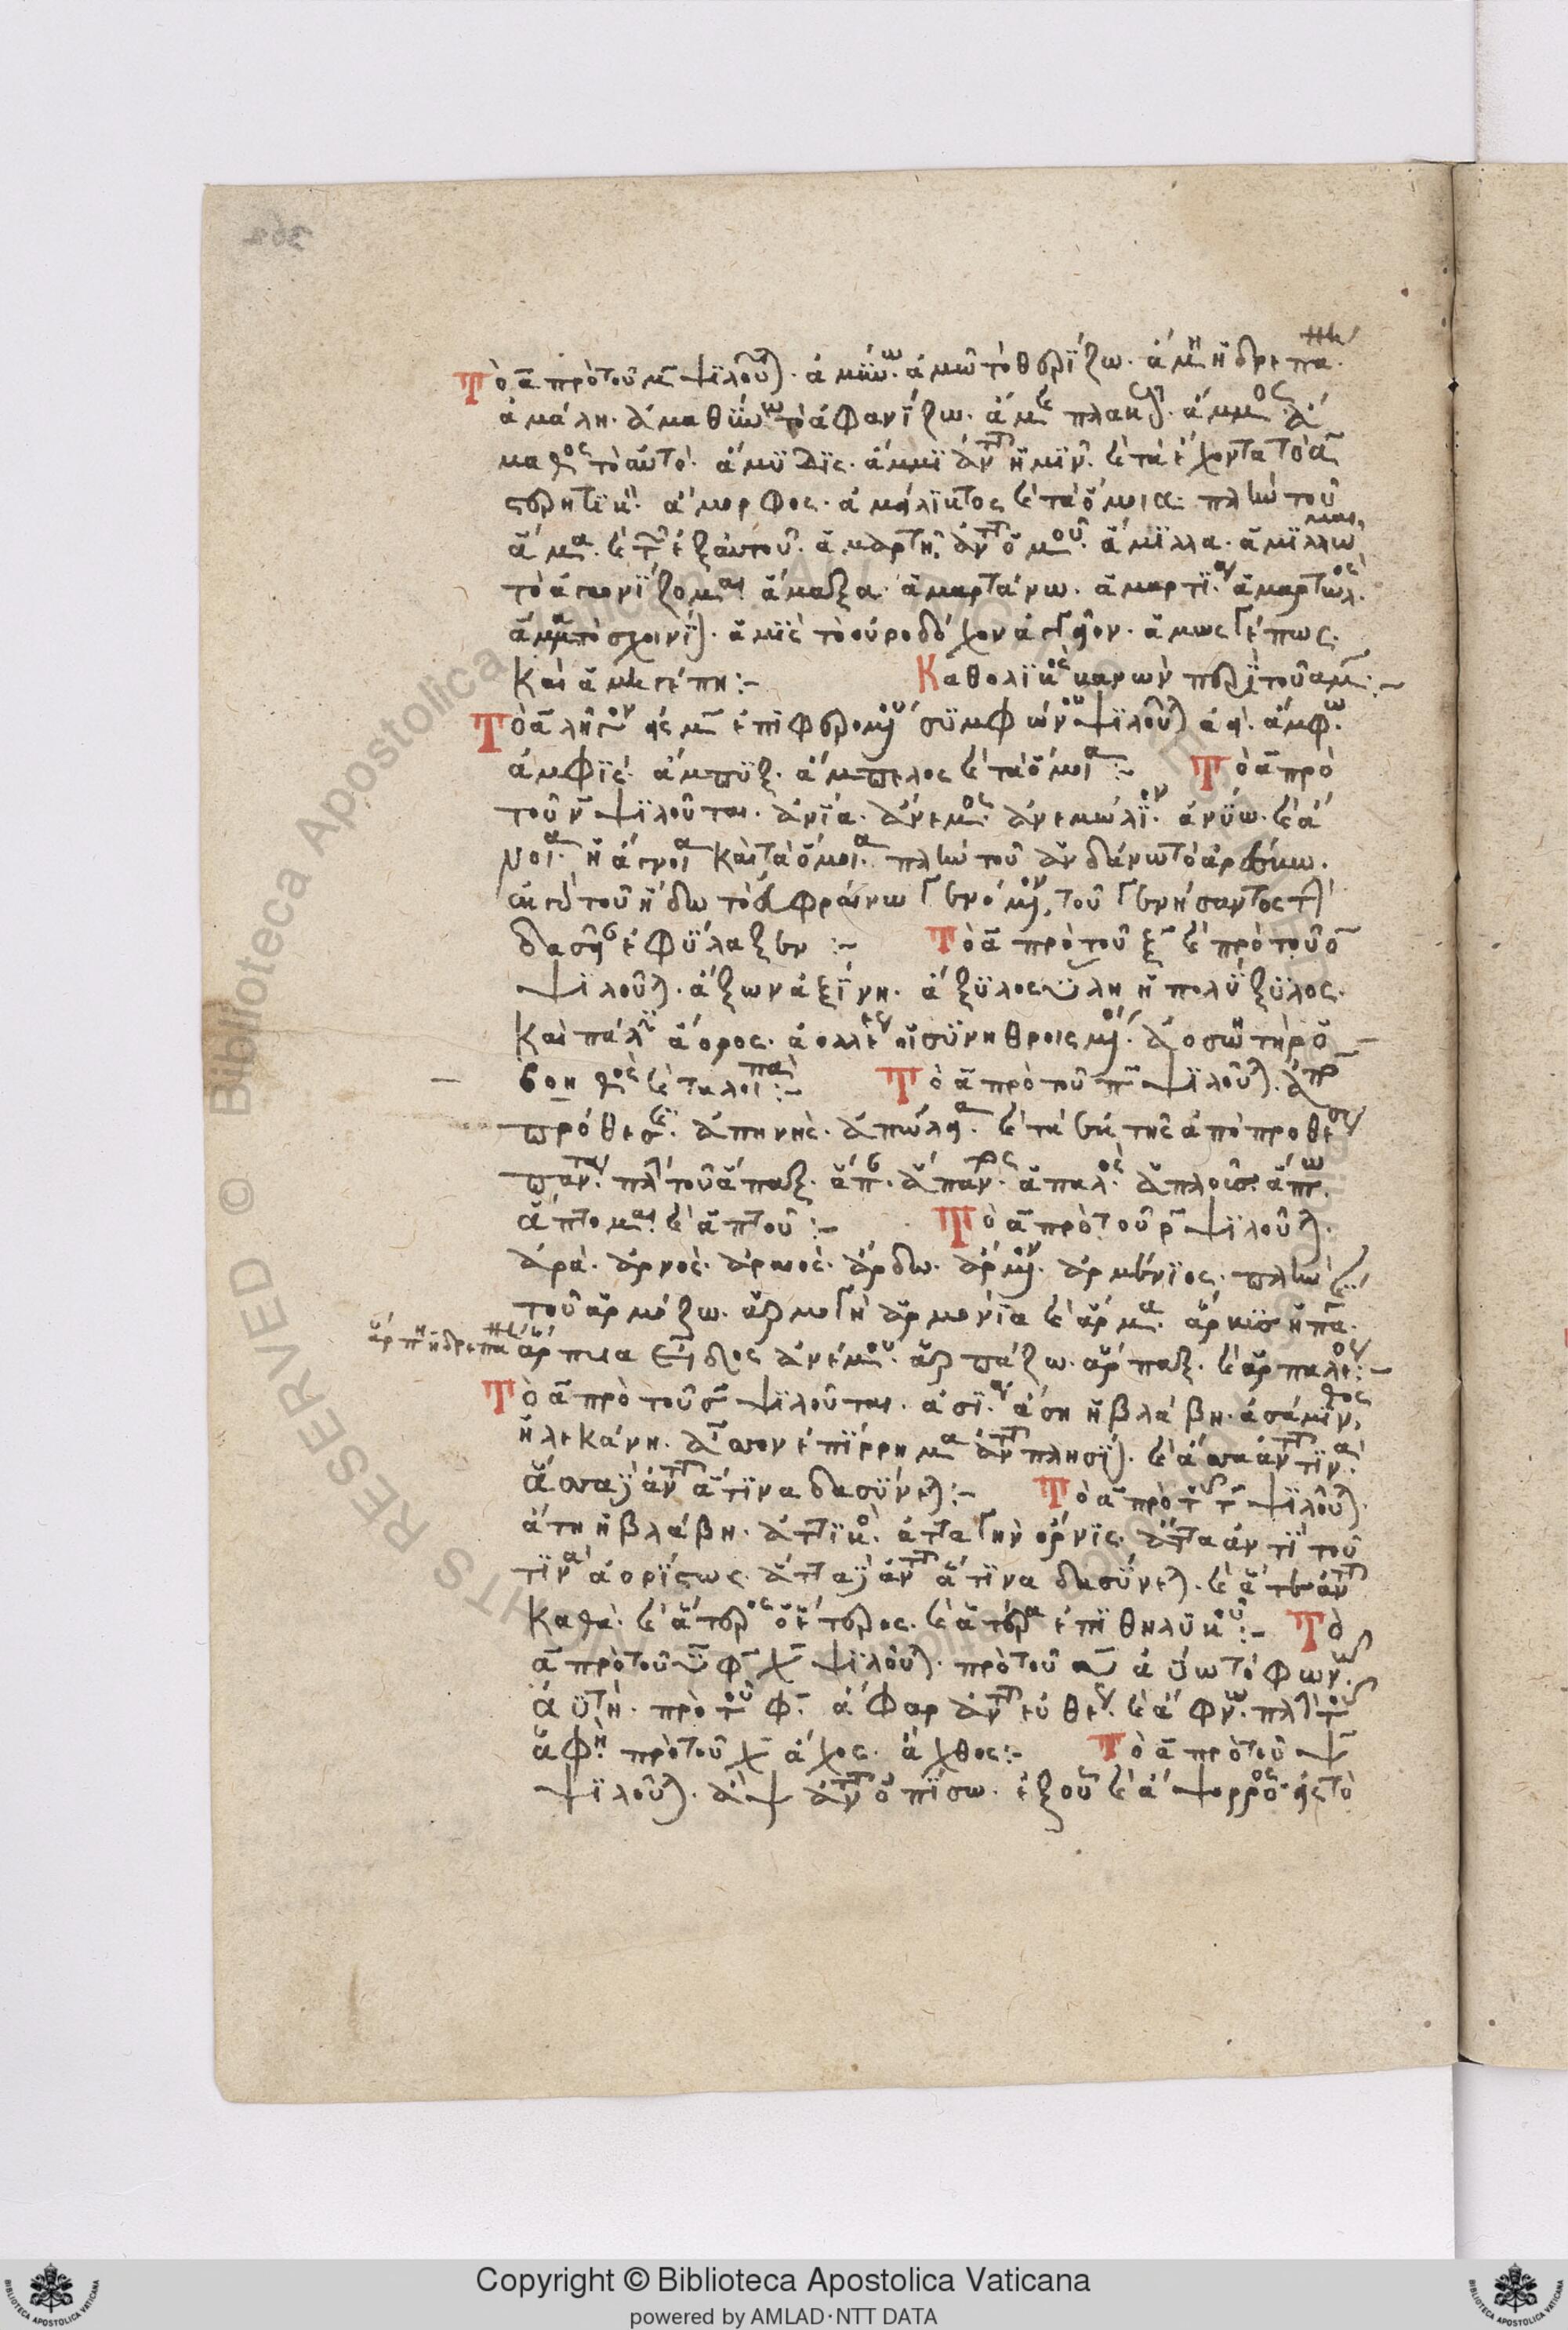 Τὸ α πρὸ τοῦ μ ψιλοῦται. ἀμύνω. ἀμῶ τὸ θερίζω. ἄμη ἡ δρεπάνη.
ἀμάλη. ἀμαθύνω τὸ ἀφανίζω. ἄμης πλακοῦς. ἄμμος. ἄ
μαθος τὸ αὐτό. ἄμυδις. ἄμμι ἀντὶ ἡμῖν. καὶ τὰ ἔχοντα τὸ α
στερητικόν. ἄμορφος. ἀμείλικτος καὶ τὰ ὅμοια. πλὴν τοῦ
ἅμα. καὶ τῶν ἐξ αὐτοῦ. ἁμαρτῆ. ἀντὶ ὁμοῦ. ἅμιλλα. ἁμιλλῶμαι
τὸ ἀγωνίζομαι. ἅμαξα. ἁμαρτάνω. ἁμαρτία. ἁμαρτωλός.
ἅμμα τὸ σχοινίον. ἁμὶς τὸ οὐροδόχον ἀγγεῖον. ἅμως γέ πως.
Καὶ ἁμῆ γέ πη:-
Καθολικὸς κανὼν περὶ τοῦ αμ:-
Τὸ α λῆγον εἰς μ ἐπιφερομένου συμφώνου ψιλοῦται ἀεί. ἄμφω.
ἀμφίς. ἄμπυξ. ἄμπελος καὶ τὰ ὅμοια:-
Τὸ α πρὸ
τοῦ ν ψιλοῦται. ἀνία. ἄνεμος. ἀνεμώλιον. ἀνύω. καὶ ἄ
νοια. ἡ ἄγνοια καὶ τὰ ὅμοια. πλὴν τοῦ ἁνδάνω τὸ ἀρέσκω.
ἐκ γὰρ τοῦ ἥδω τὸ εὐφραίνω γενόμενον, τοῦ γεννήσαντος τὴν
δασεῖαν ἐφύλαξεν:-
Τὸ α πρὸ τοῦ ξ καὶ πρὸ τοῦ ο
ψιλοῦται. ἄξων ἀξίνη. ἄξυλος ὕλη ἡ πολύξυλος.
Καὶ πάλιν ἄορος. ἀολλέες οἱ συνηθροισμένοι. ἀοσσητὴρ ὁ
βοηθὸς καὶ τὰ λοιπά:-
Τὸ α πρὸ τοῦ π ψιλοῦται. ἀπὸ
πρόθεσις. ἀπηνής. ἀπώλεια. καὶ τὰ ἐκ τῆς ἀπὸ προθέσεως
πάντα. πλὴν τοῦ ἅπαξ. ἅπαν. ἅπαντες. ἁπαλός. ἁπλοῦς. ἅπτω.
ἅπτομαι. καὶ ἁπτοῦ:-
Τὸ α πρὸ τοῦ ρ ψιλοῦται.
ἀρά. ἀρνός. ἀραιός. ἄρδω. ἄρμενον. ἀρμένιος. πλὴν
τοῦ ἁρμόζω. ἁρμογὴ ἁρμονία καὶ ἅρμα.
ἅρπη ἡ δρεπάνη ἅρπυια εἶδος ἀνέμου. ἁρπάζω. ἅρπαξ. καὶ ἁρπαλέος:-
Τὸ α πρὸ τοῦ σ ψιλοῦται. ἀσία. ἄση ἡ βλάβη. ἀσάμινθος,
ἡ λεκάνη. ἆσσον ἐπίρρημα ἀντὶ πλησίον. καὶ ἄσσα ἀντὶ τινά.
ἅσσα δὲ ἀντὶ ἅτινα δασύνεται:-
Τὸ α πρὸ τοῦ τ ψιλοῦται.
ἄτη ἡ βλάβη. ἀττικός. ἀτταγὴν ὄρνις. ἄττα ἀντὶ τοῦ
τινὰ ἀορίστως. ἅττα δὲ ἀντὶ ἅτινα δασύνεται. καὶ ἅτε ἀντὶ
καθά. καὶ ἅτερος ὁ ἕτερος. καὶ ἁτέρα ἐπὶ θηλυκοῦ:-
Τὸ
α πρὸ τοῦ υ φ χ ψιλοῦται. πρὸ τοῦ υ ἀΰω τὸ φωνῶ.
ἀϋτή. πρὸ τοῦ φ. ἄφαρ ἀντὶ εὐθέως. καὶ ἄφνω. πλὴν τοῦ
ἁφή. πρὸ τοῦ χ ἄχος. ἄχθος:-
Τὸ α πρὸ τοῦ ψ
ψιλοῦται. ἄψ ἀντὶ ὀπίσω. ἐξ οὗ καὶ ἄψορρος ὁ εἰς τὸ
Copyright © Biblioteca Apostolica Vaticana
powered by AMLAD·NTT DATA